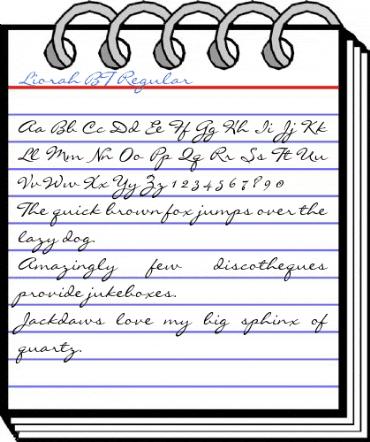 Liorah BT Regular
Aa Bb Cc Dd Ee Ff Gg Hh Ii Jj Kk
Ll Mm Nn Oo Pp Qq Rr Ss Tt Uu
Vv Ww Xx Yy Zz 1 2 3 4 5 6 7 8 9 0
The quick brown fox jumps over the
lazy dog.
Amazingly few discotheques
provide jukeboxes.
Jackdaws love my big sphinx of
quartz.